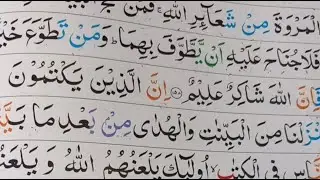 الْمَرْوَةَ مِنْ شَعَآئِرِ اللّٰهِ ۚ فَمَنْ حَجَّ
فَلَا جُنَاحَ عَلَيْهِ اَنْ يَّطَّوَّفَ بِهِمَا ؕ وَمَنْ تَطَوَّعَ خَيْ
فَاِنَّ اللّٰهَ شَاكِرٌ عَلِيْمٌ ۝۱۵۸ اِنَّ الَّذِيْنَ يَكْتُمُوْنَ
نْزَلْنَا مِنَ الْبَيِّنٰتِ وَالْهُدٰى مِنْۢ بَعْدِ مَا بَيَّ
نَّاسِ فِى الْكِتٰبِ ۙ اُولٰٓئِكَ يَلْعَنُهُمُ اللّٰهُ وَ يَلْعَنُ